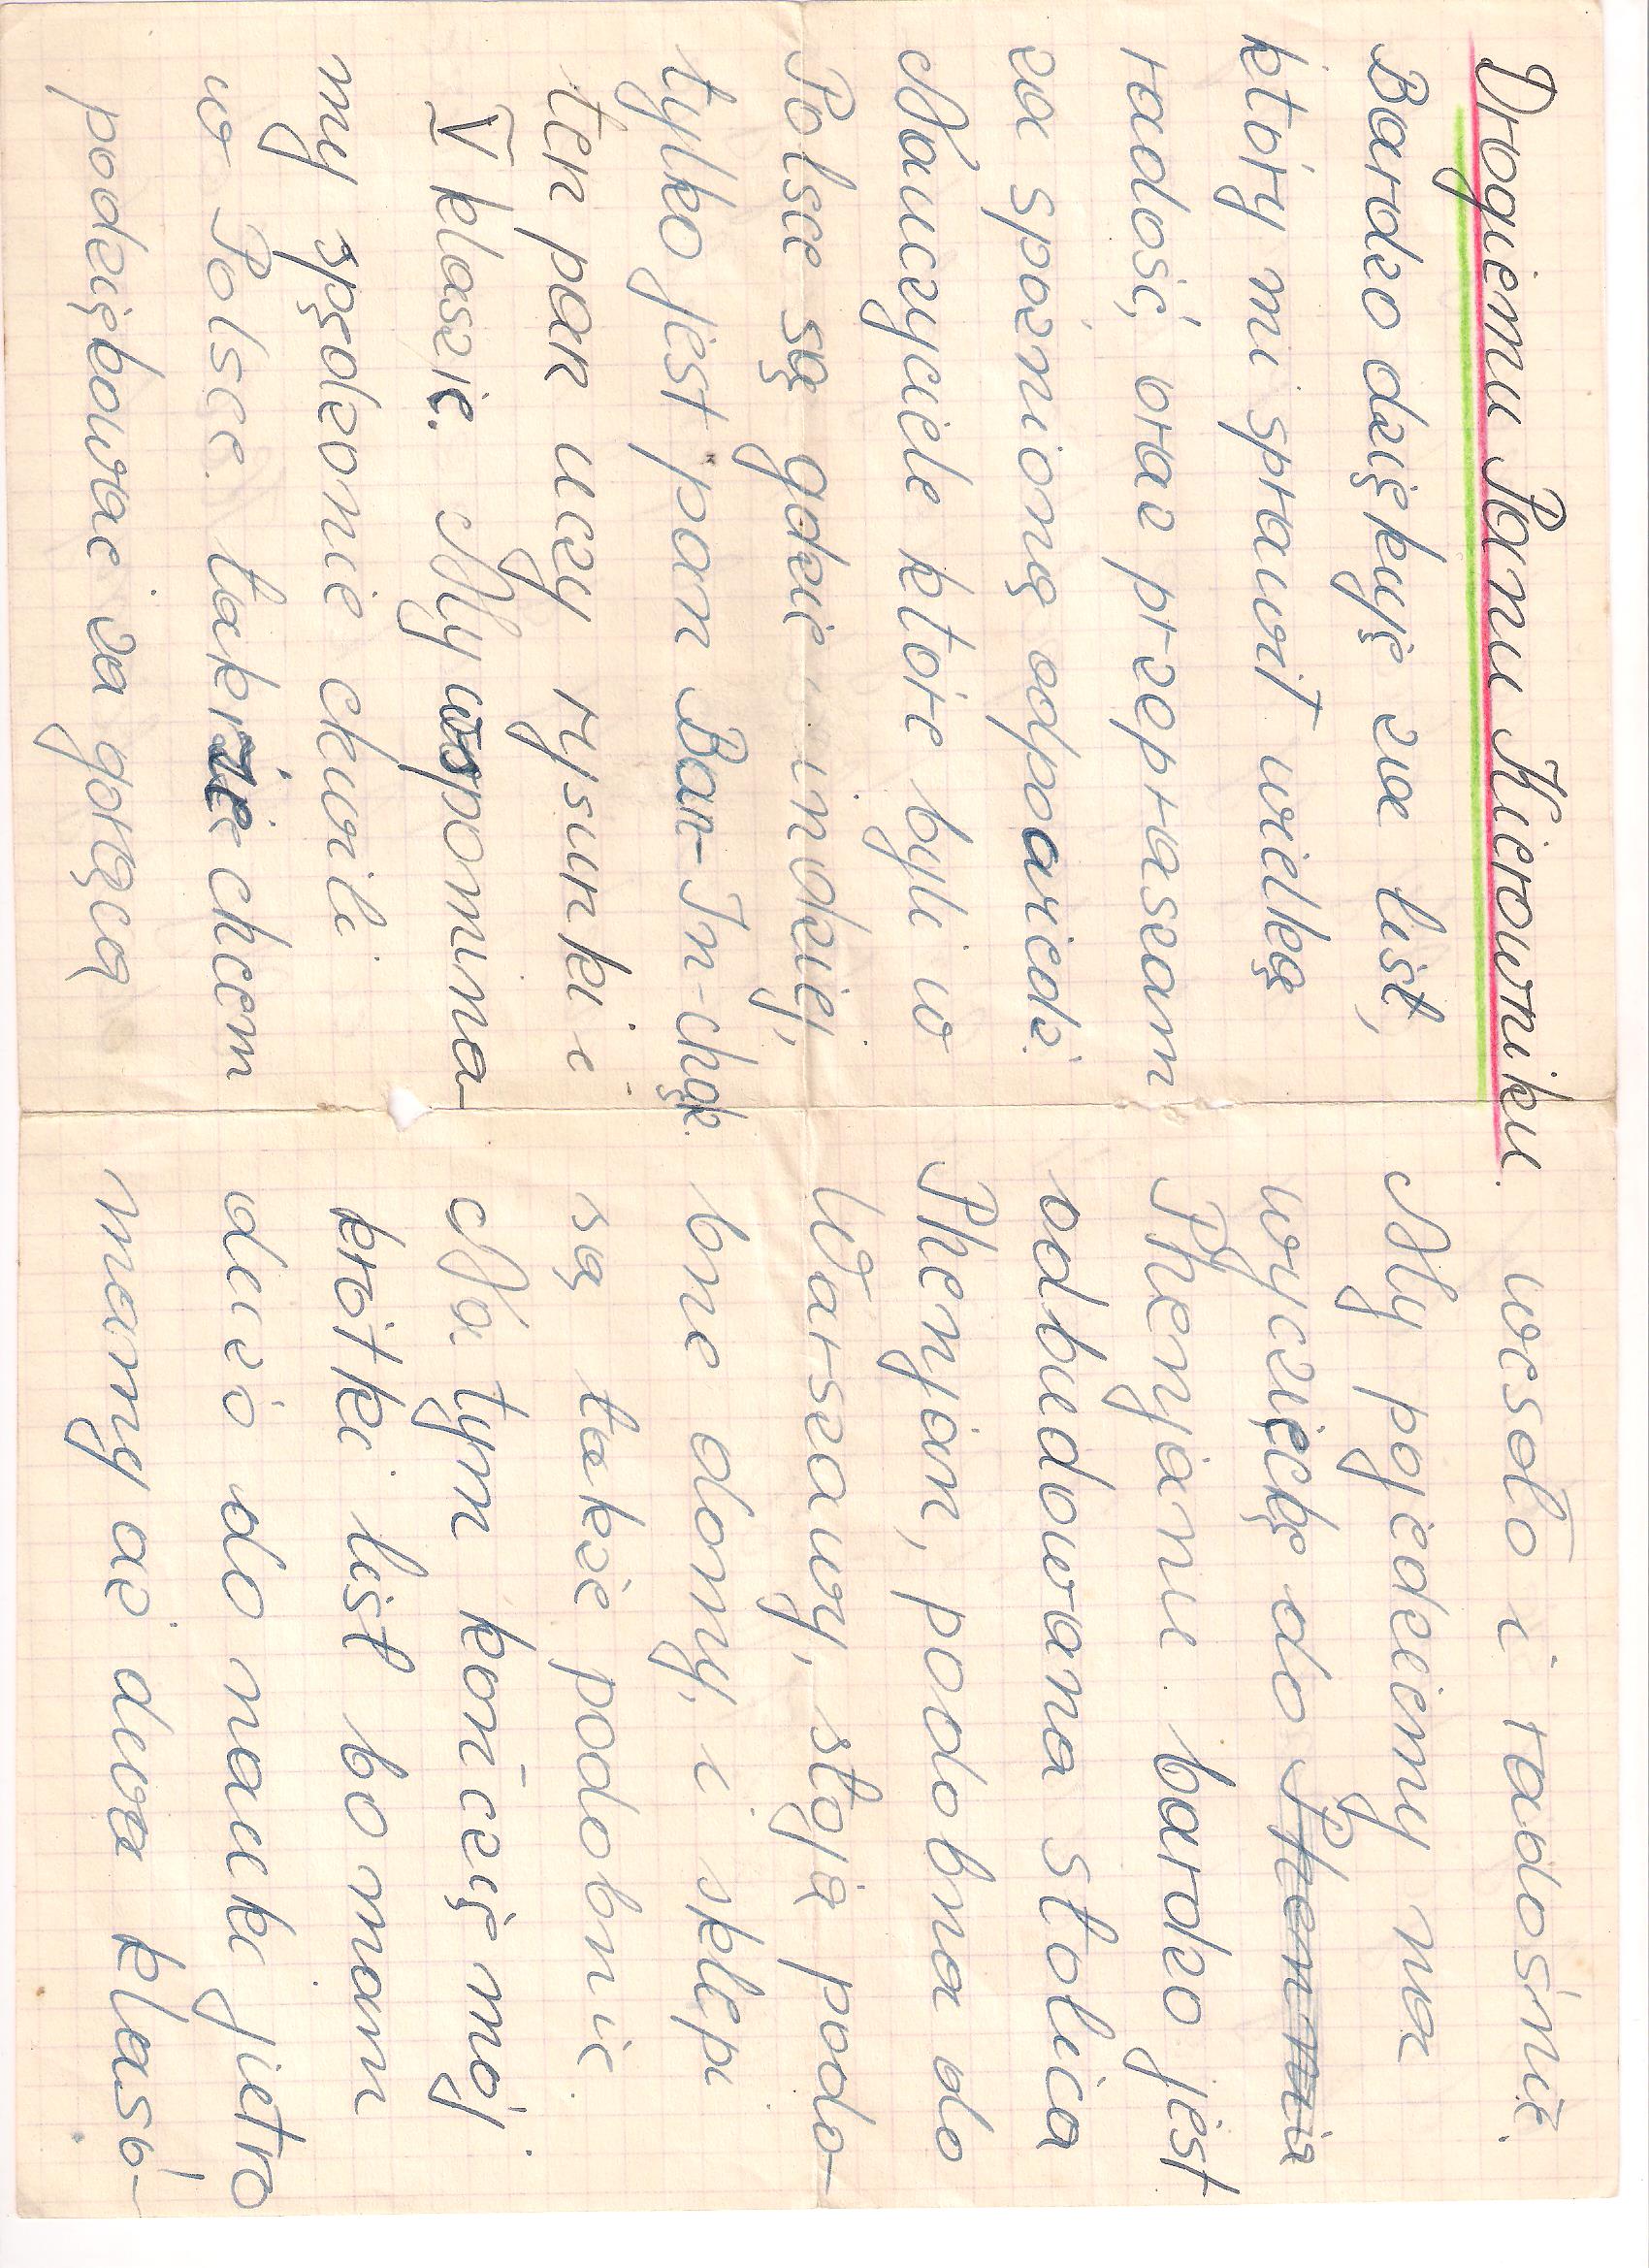 Drogiemu Panu Kierowniku.
Bardzo dziękuję za list,
który mi sprawił wielkę
radość, oraz przeprasam
za spóznionę odpowiedź.
Nauczyciele które byli w
Polsce sę gdzie indziej,
tylko jest pan Ban-In-chęk.
ten pan uczy rysunki i
V klasie. My wspomina-
my spędzonie chwili
w Polsce. także chcem
podziębowac za gorącą
wesoło i radośnie.
My pojedziemy na
wyczieckę do Phennia
Phenyanie. bardzo jest
odbudowana stolica
Phenyan, podobna do
Warszawy, stoję podo-
bne domy, i sklepi
są także podobnie.
Na tym kończię mój
krótki list bo mam
dużo do nauki jietro
mamy aż dwa klasó-